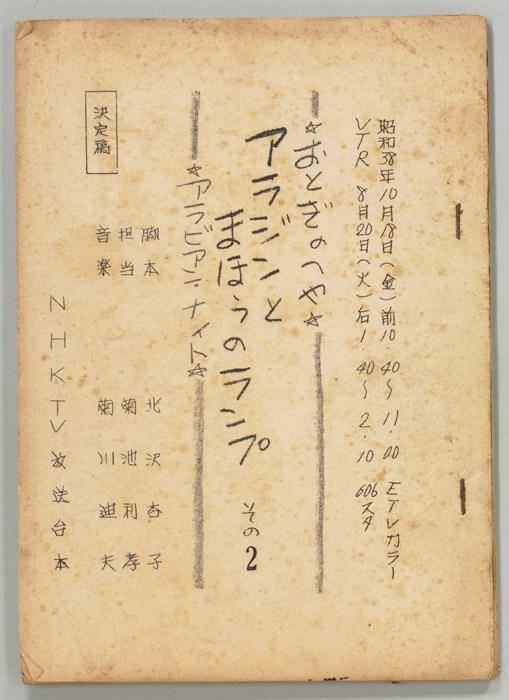 昭和38年10月18日(金)前10.40〜11.00 ETVカラー
VTR 8月20日(火)后1.40〜2.10 606スタ
☆おとぎのへや☆
アラジンと
まほうのランプ その2
☆アラビアンナイト☆
決定稿
脚本 北沢杏子
担当 菊池利孝
音楽 菊川迪夫
NHKTV放送台本